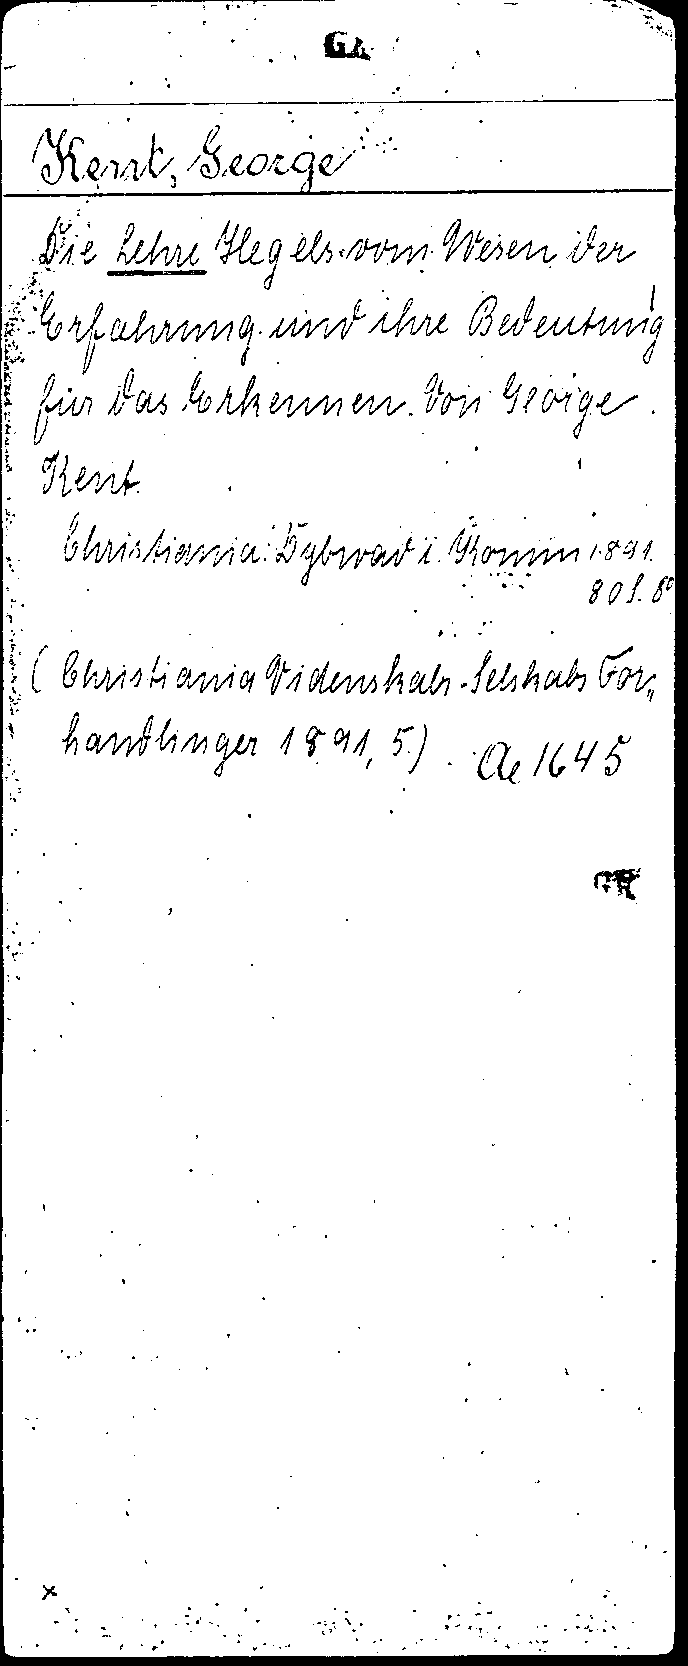 Kent, George
Die Lehre Hegels vom Wesen der
Erfahrung und ihre Bedeutung
für das Erkennen. Von George
Kent.
Christiania: Dybwad i. Komm 1891.
80 S. 8°
(Christiania Videnskabs-Selskabs For„
handlinger 1891, 5.) Ae 1645